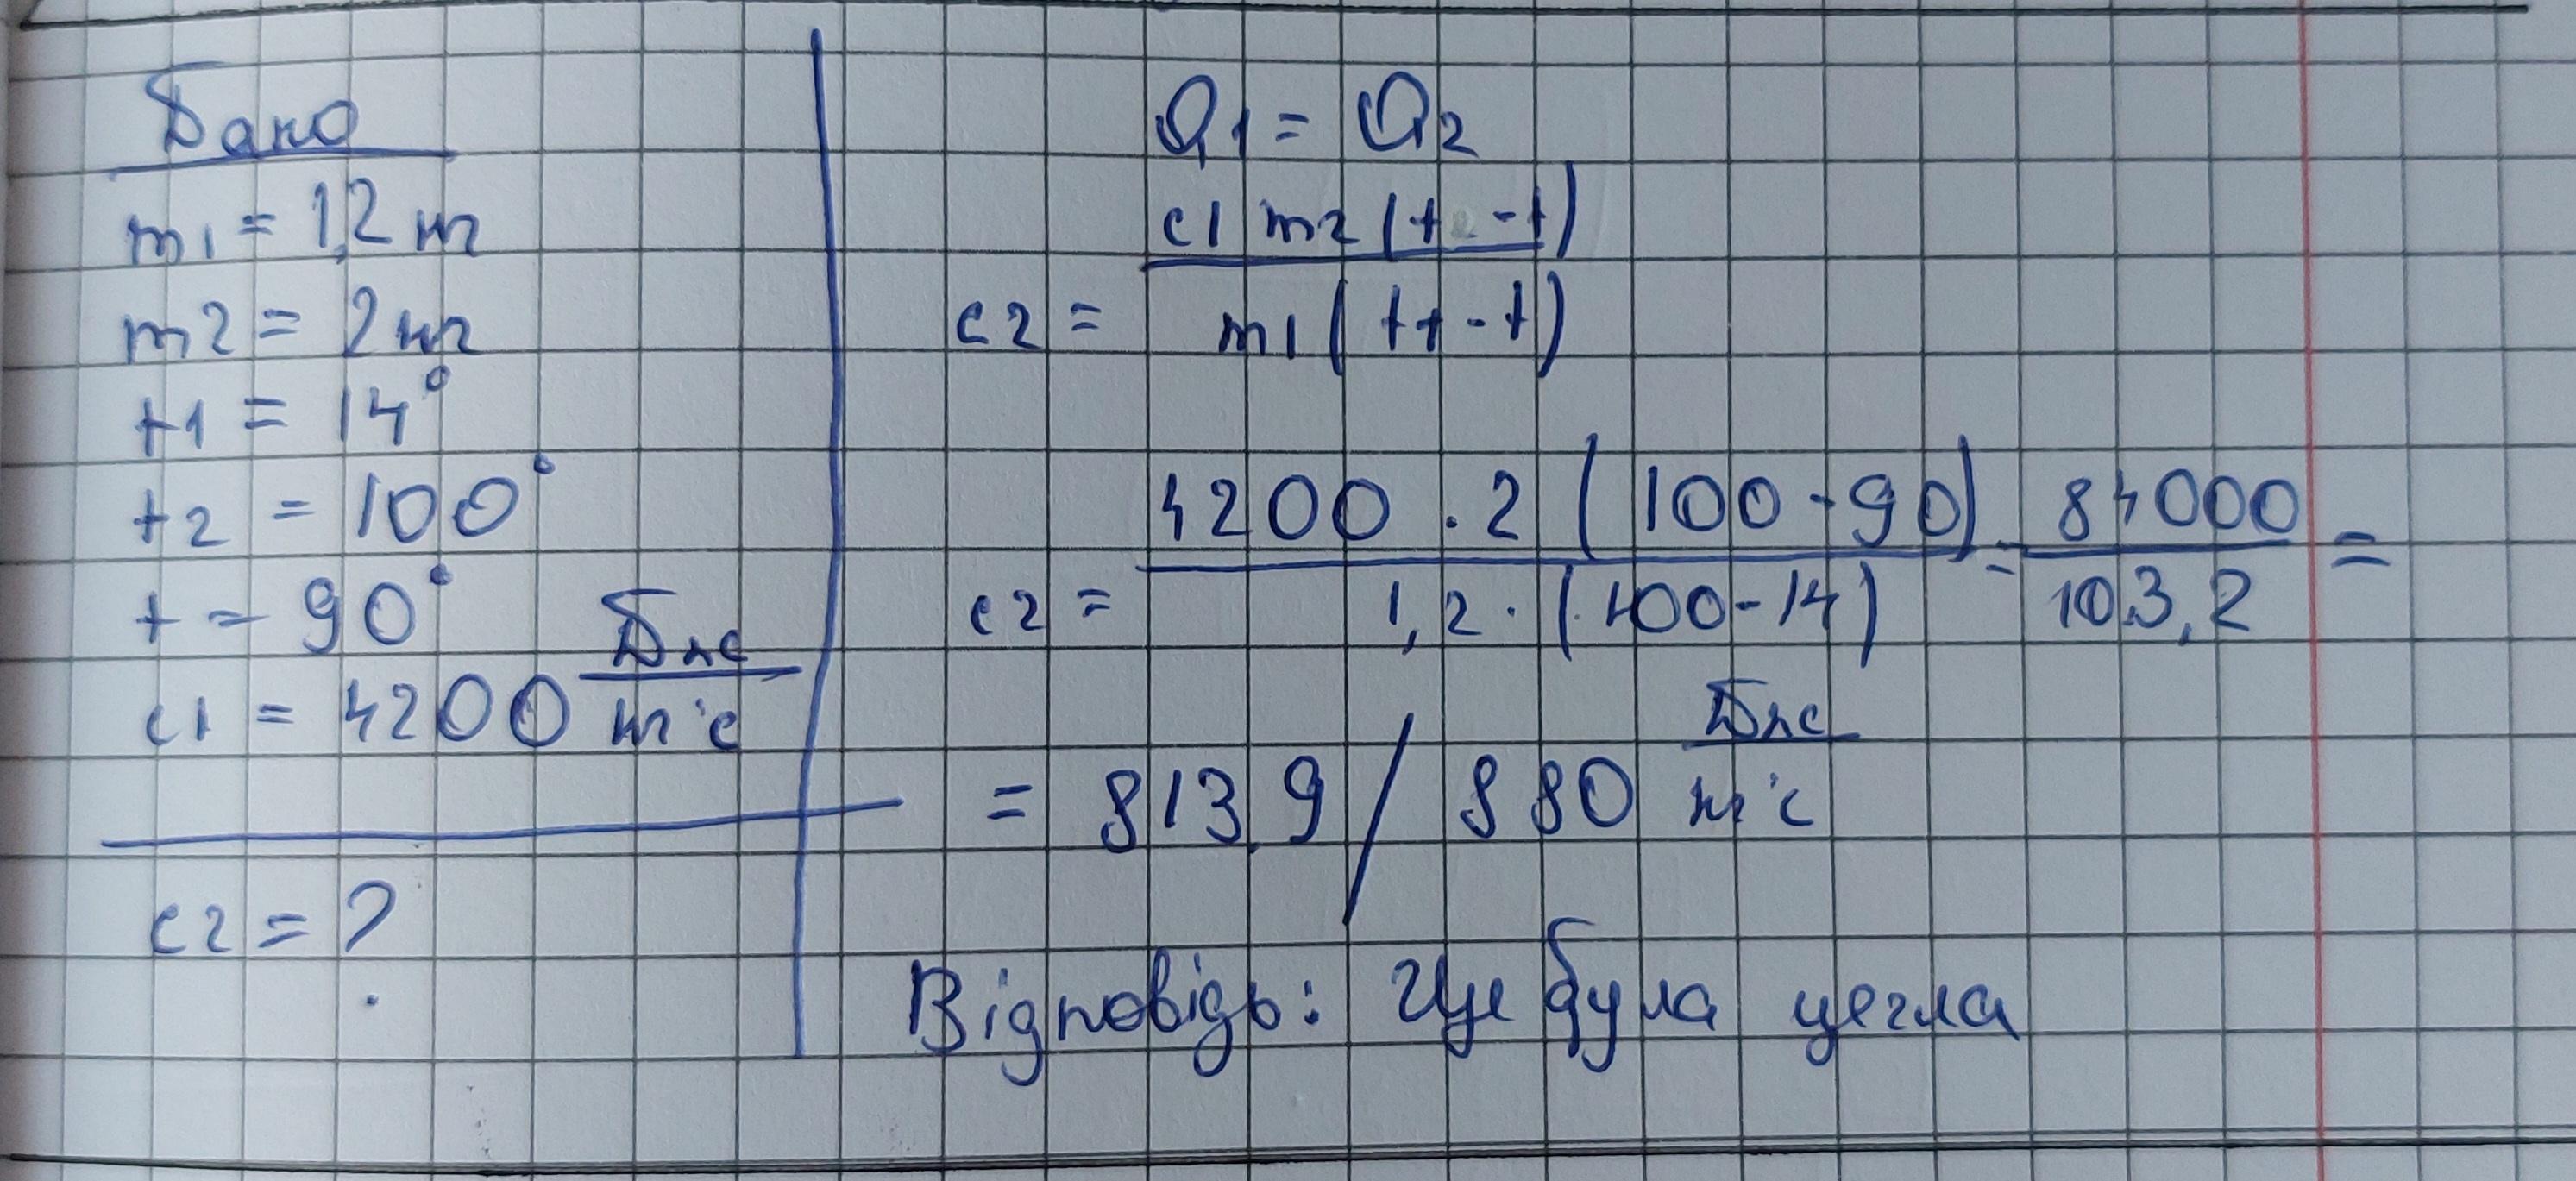 Дано
m1 = 1,2 кг
m2 = 2 кг
t1 = 14°
t2 = 100°
t = 90°
c1 = 4200 Дж/кг°c
c2 = ?
Q1 = Q2
c2 = c1 m2 (t2 - t) / m1 (t1 - t)
c2 = 4200 · 2 (100 - 90) / 1,2 · (100 - 14) = 84000 / 103,2 =
= 813,9 / 880 Дж/кг°c
Відповідь: Це була цегла